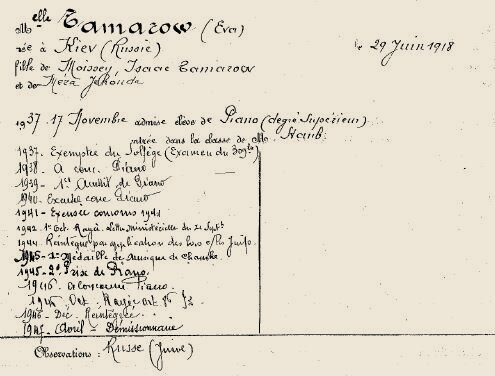 Melle Tamarow (Eva)
née à Kiev (Russie) le 29 Juin 1918
fille de Moïssey, Isaac Tamarow
et de Méra Jehouda
1937 17 Novembre admise élève de Piano (degré supérieur)
entrée dans la classe de M. Staub.
1937- Exemptée du Solfège (Examen du
1938- A conc. Piano
1939- 1er Accessit de Piano
1940- conc. Piano
1941- Excusée concours 1941
1942. 1er Oct. Rayée. Lettre Ministérielle du 21 Septbre
1944. Réintégrée par application des lois
1945- 1e Médaille de Musique de Chambre
1945- 2d Prix de Piano.
1946. a concouru Piano.
1946 Oct. Rayée art.
1946- Déc. Réintégrée.
1947- Avril - Démissionnaire
Observations: Russe (Juive)